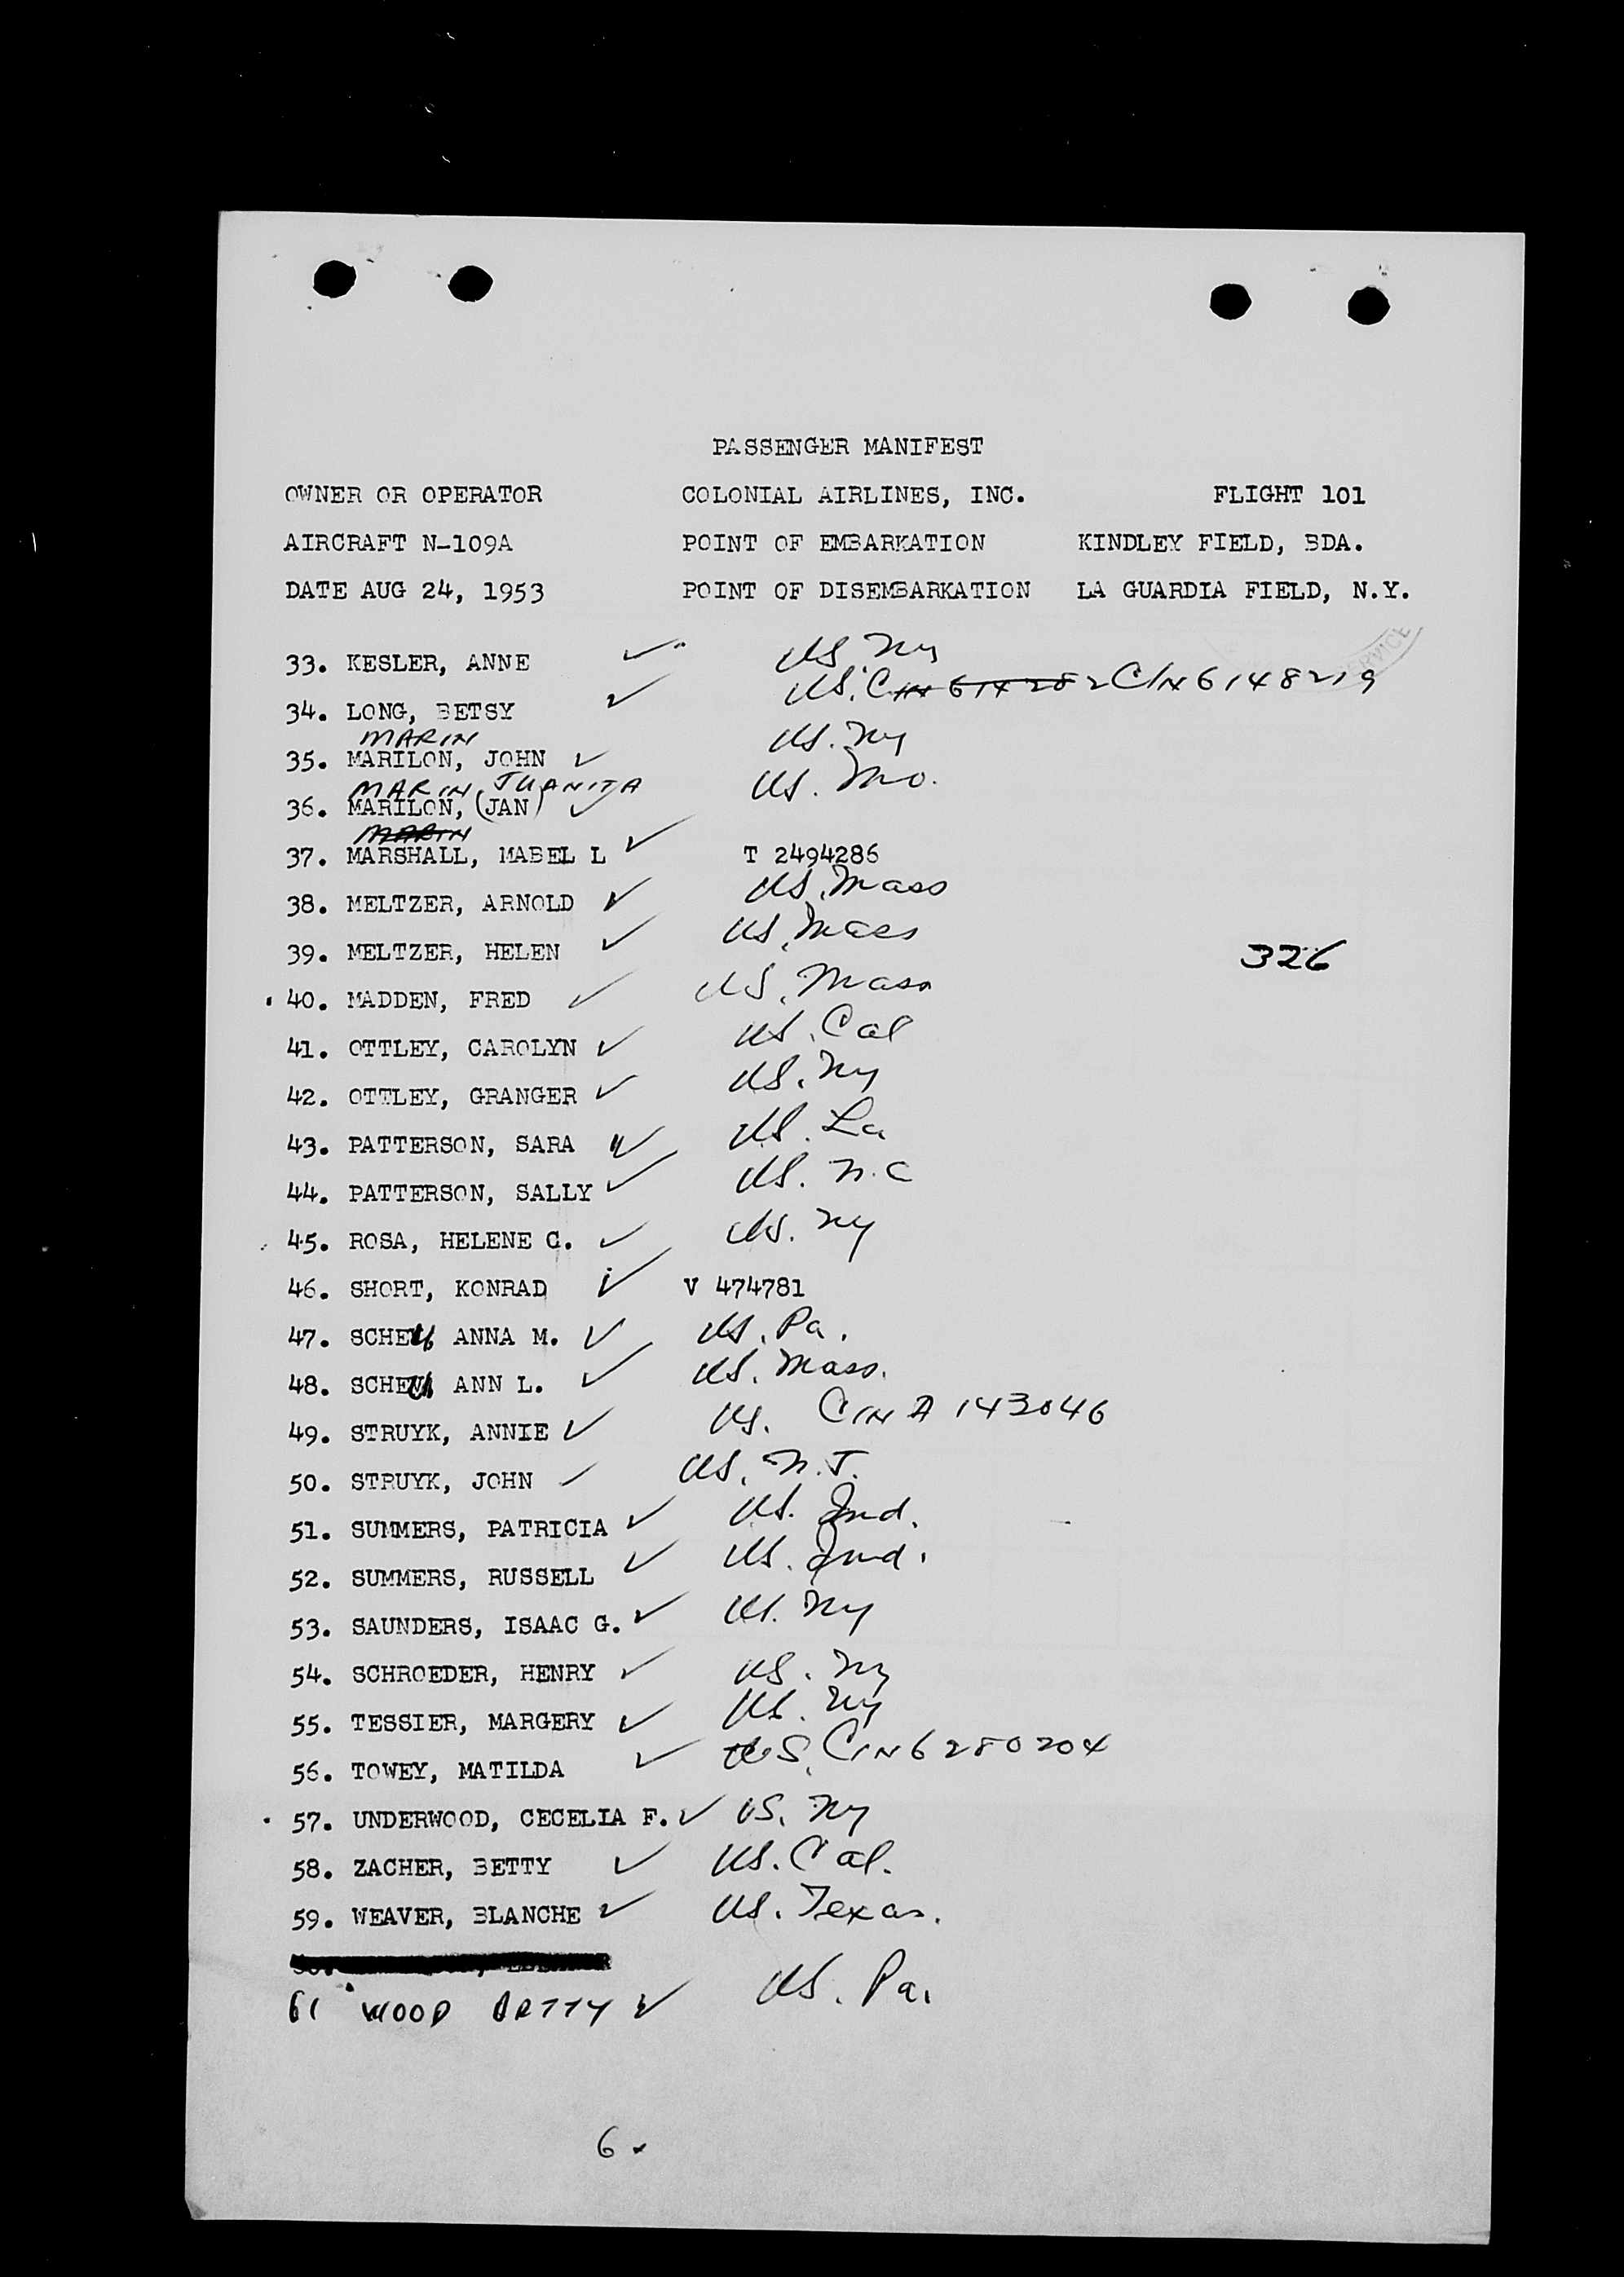 PASSENGER MANIFEST
OWNER OR OPERATOR COLONIAL AIRLINES, INC. FLIGHT 101
AIRCRAFT N-109A POINT OF EMBARKATION KINDLEY FIELD, BDA.
DATE AUG 24, 1953 POINT OF DISEMBARKATION LA GUARDIA FIELD, N.Y.
SERVICE
33. KESLER, ANNE US. Ny
34. LONG, BETSY US. CIN 6148219
MARIN
35. MARILON, JOHN US. Ny
MARIN, JUANITA
36. MARILON, (JAN) US. Mo.
MARIN
37. MARSHALL, MABEL L T 2494286
38. MELTZER, ARNOLD US. Mass
39. MELTZER, HELEN US. Mass
326
40. MADDEN, FRED US. Mass
41. OTTLEY, CAROLYN US. Cal
42. OTTLEY, GRANGER US. Ny
43. PATTERSON, SARA US. La
44. PATTERSON, SALLY US. N.C
45. ROSA, HELENE C. US. Ny
46. SHORT, KONRAD V 474781
47. SCHEU, ANNA M. US. Pa.
48. SCHEU, ANN L. US. Mass.
49. STRUYK, ANNIE US. CIN A 143046
50. STRUYK, JOHN US. N.J.
51. SUMMERS, PATRICIA US. Ind.
52. SUMMERS, RUSSELL US. Ind.
53. SAUNDERS, ISAAC G. US. Ny
54. SCHROEDER, HENRY US. Ny
55. TESSIER, MARGERY US. Ny
56. TOWEY, MATILDA US. CIN 6280204
57. UNDERWOOD, CECELIA F. US. Ny
58. ZACHER, BETTY US. Cal.
59. WEAVER, BLANCHE US. Texas.
61 WOOD BETTY US. Pa.
6.